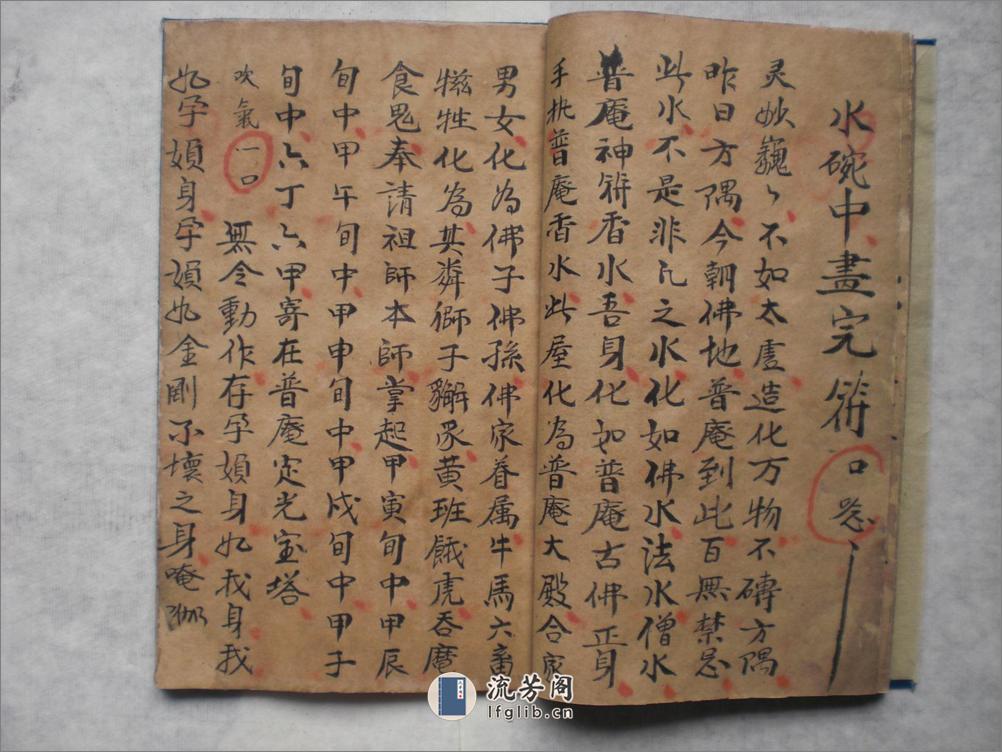 水碗中畫完符口念
灵妙巍々不如太虛造化万物不磚方隅
昨日方隅今朝佛地普庵到此百無禁忌
此水不是非凡之水化如佛水法水僧水
普庵神符香水吾身化如普庵古佛正身
手执普庵香水此屋化為普庵大殿合家
男女化為佛子佛孫佛家眷属牛馬六畜
犧牲化為其粦獅子獬豸黃班餓虎吞魔
食鬼奉請祖師本師掌起甲寅旬中甲辰
旬中甲午旬中甲申旬中甲戌旬中甲子
旬中六丁六甲寄在普庵定光宝塔
吹氣一口 無令動作存孕媍身如我身我
如孕媍身孕媍如金剛不壞之身唵
流芳阁
lfglib.cn